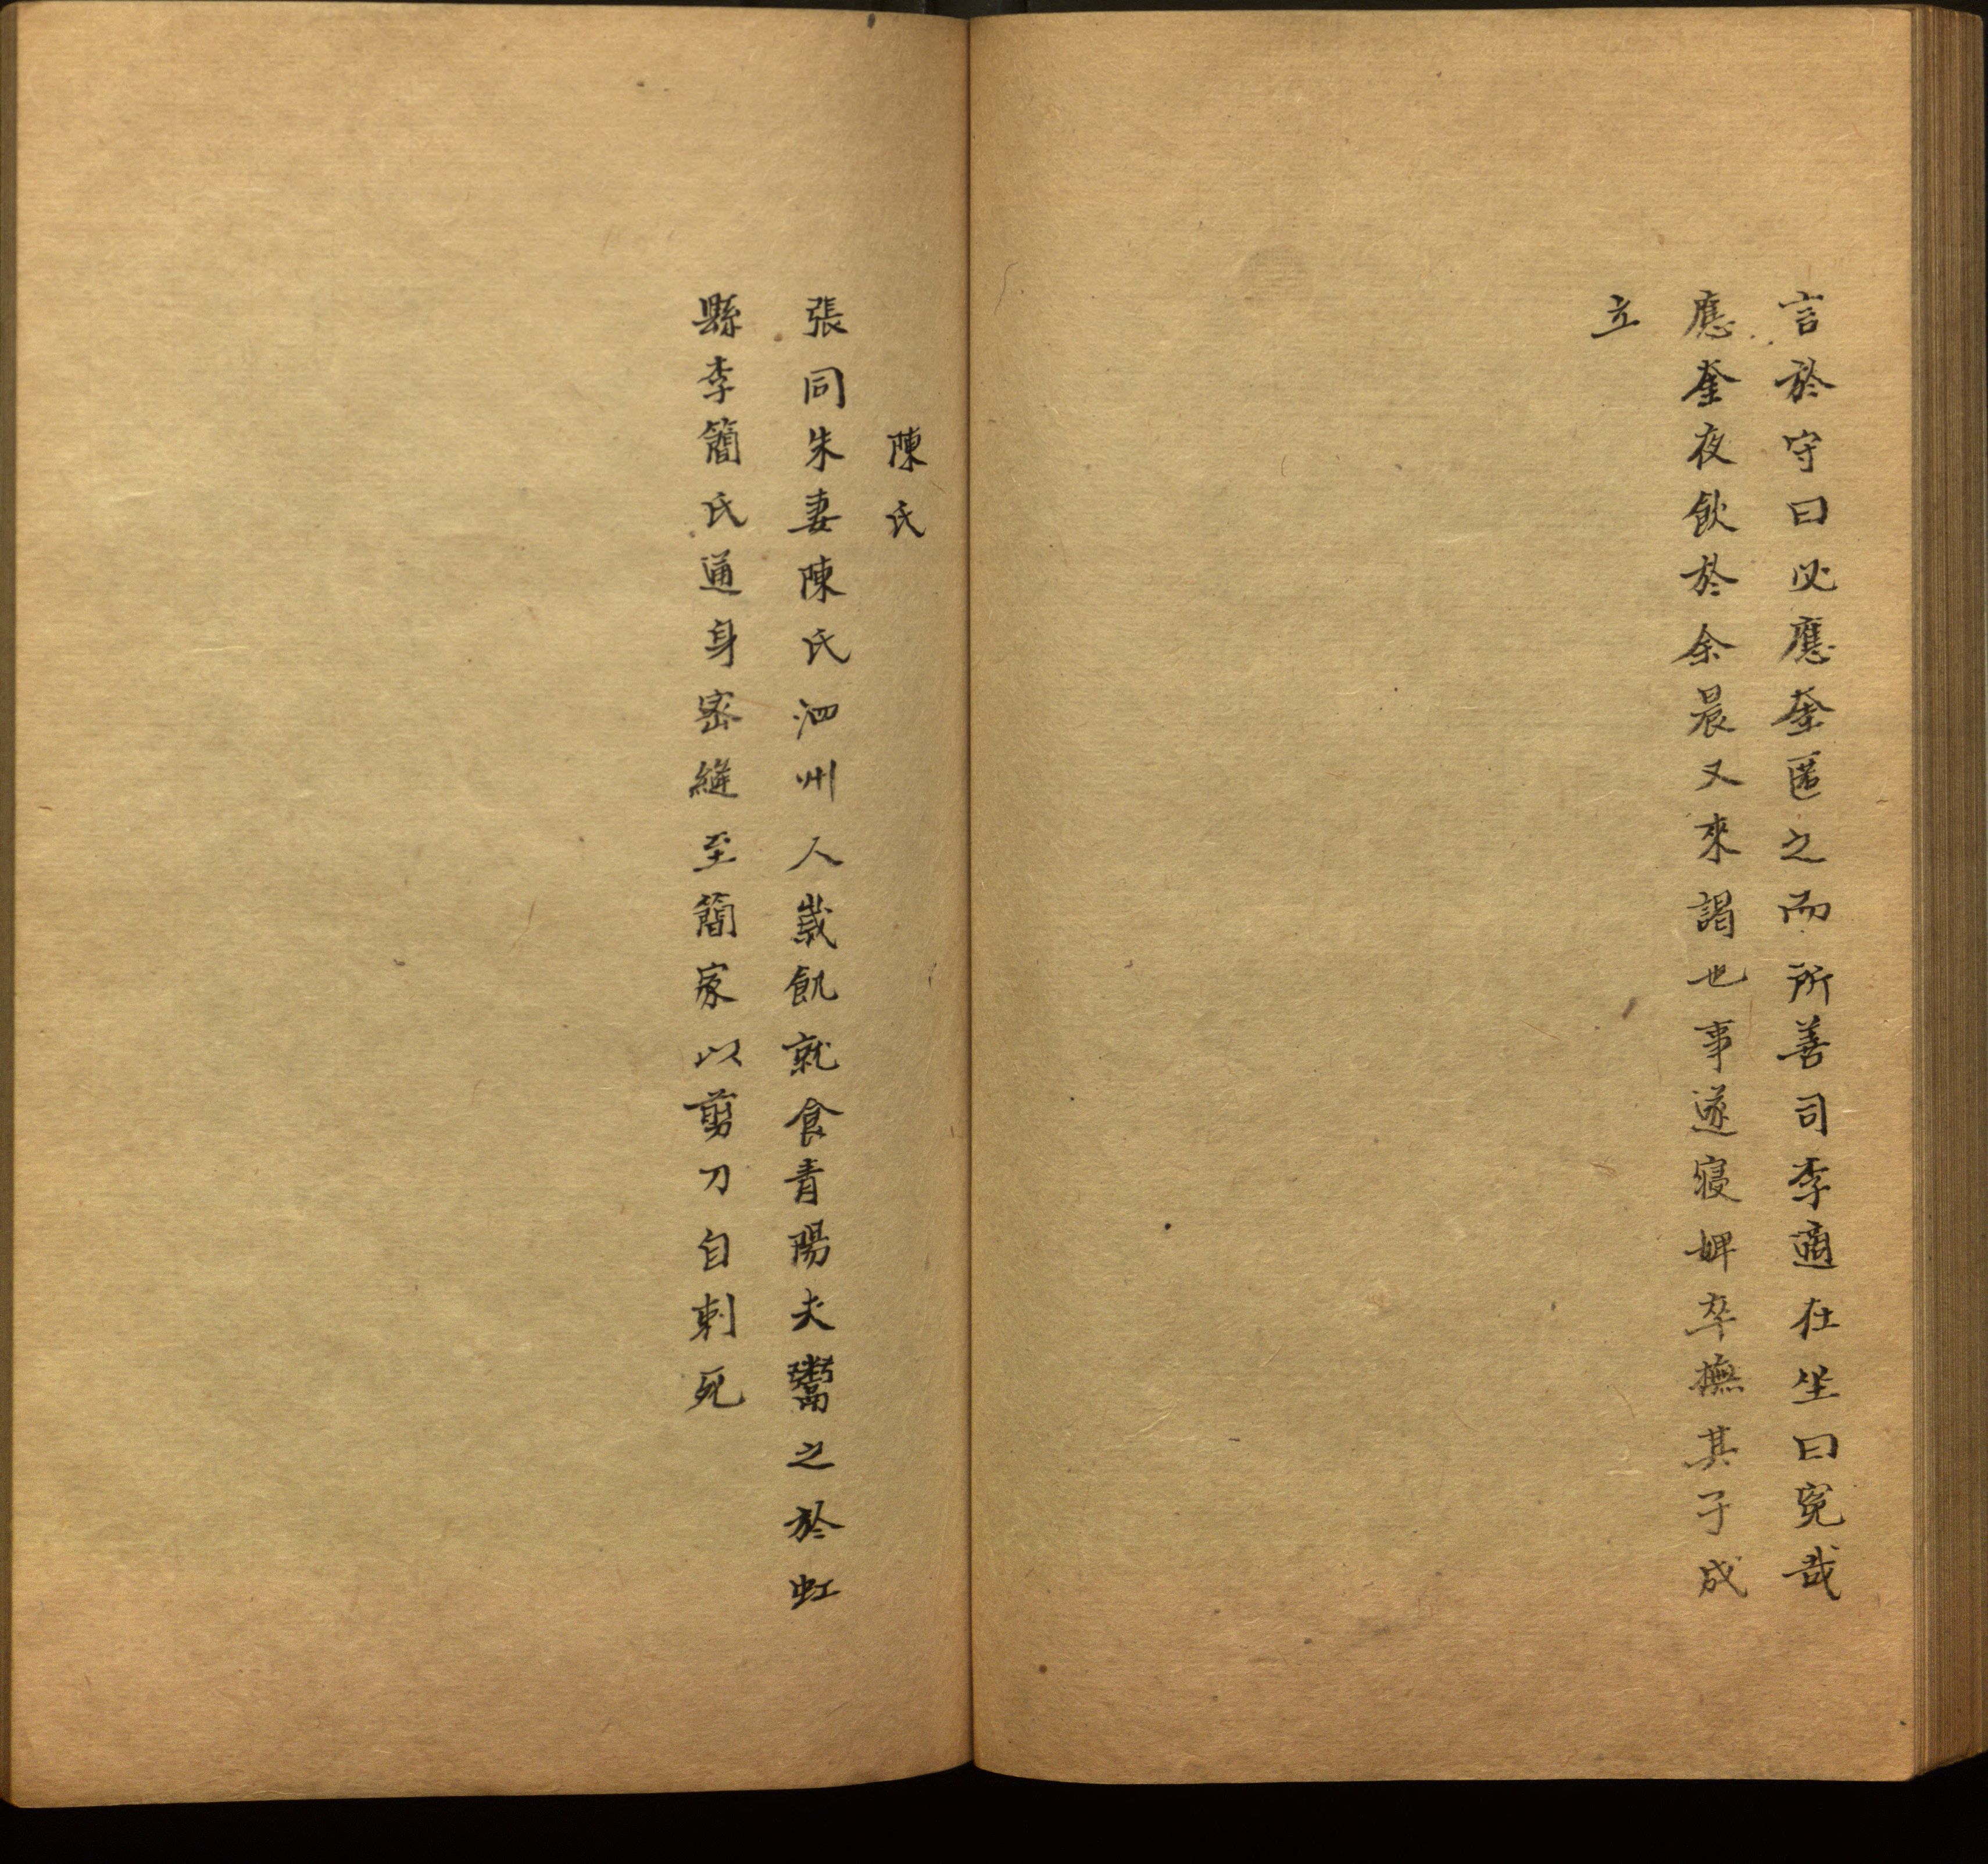 言於守曰必應奎匿之而所善司李適在坐曰寃哉
應奎夜飲於余晨又來謁也事遂寢婢卒撫其子成
立
陳氏
張同朱妻陳氏泗州人歲飢就食青陽夫鬻之於虹
縣李簡氏通身密縫至簡家以剪刀自刺死